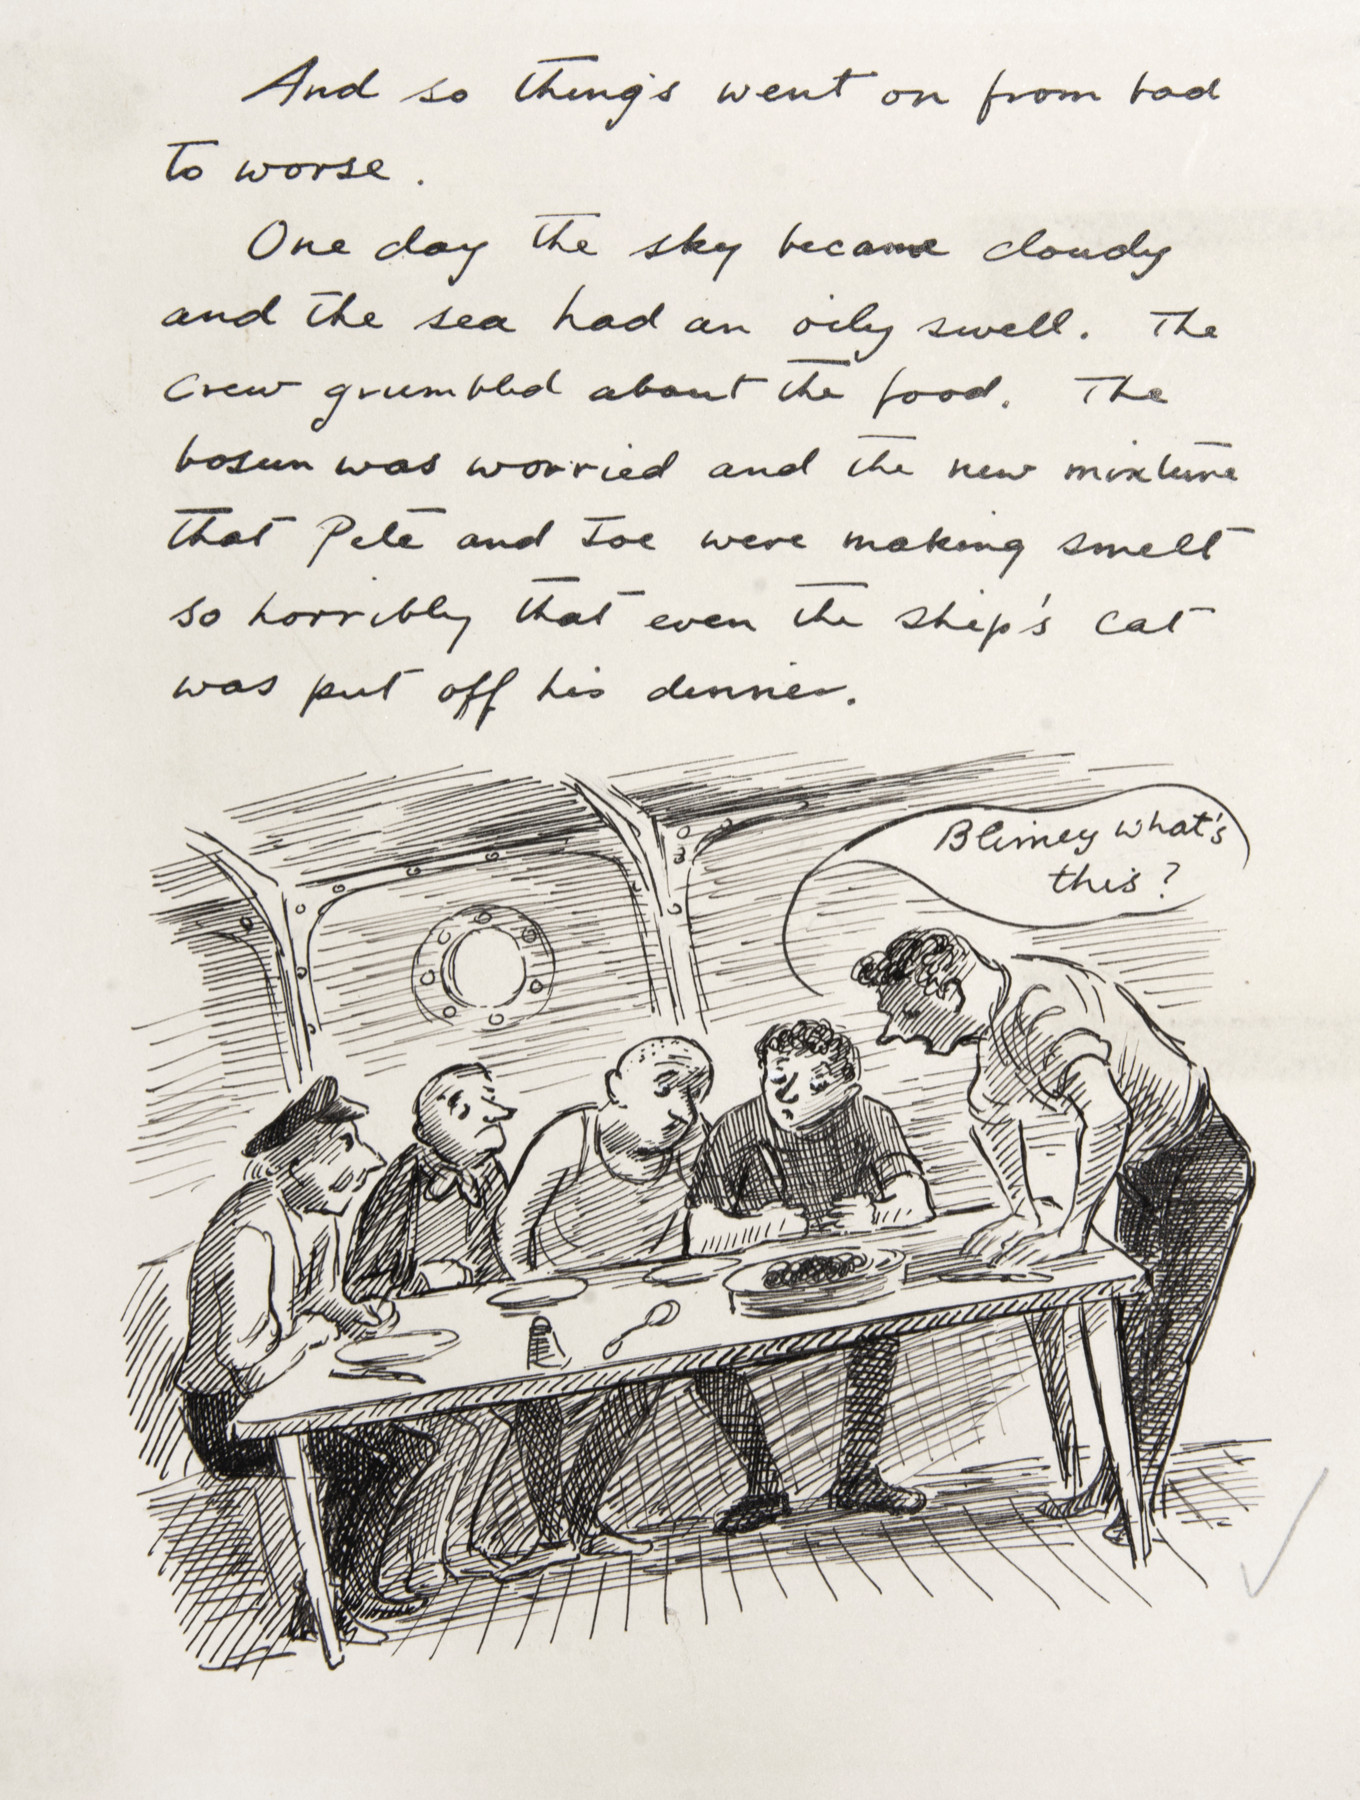 And so things went on from bad
to worse.
One day the sky became cloudy
and the sea had an oily swell. The
crew grumbled about the food. The
bosun was worried and the new mixture
that Pete and Joe were making smelt
so horribly that even the ship's cat
was put off his dinner.
Blimey what's
this?